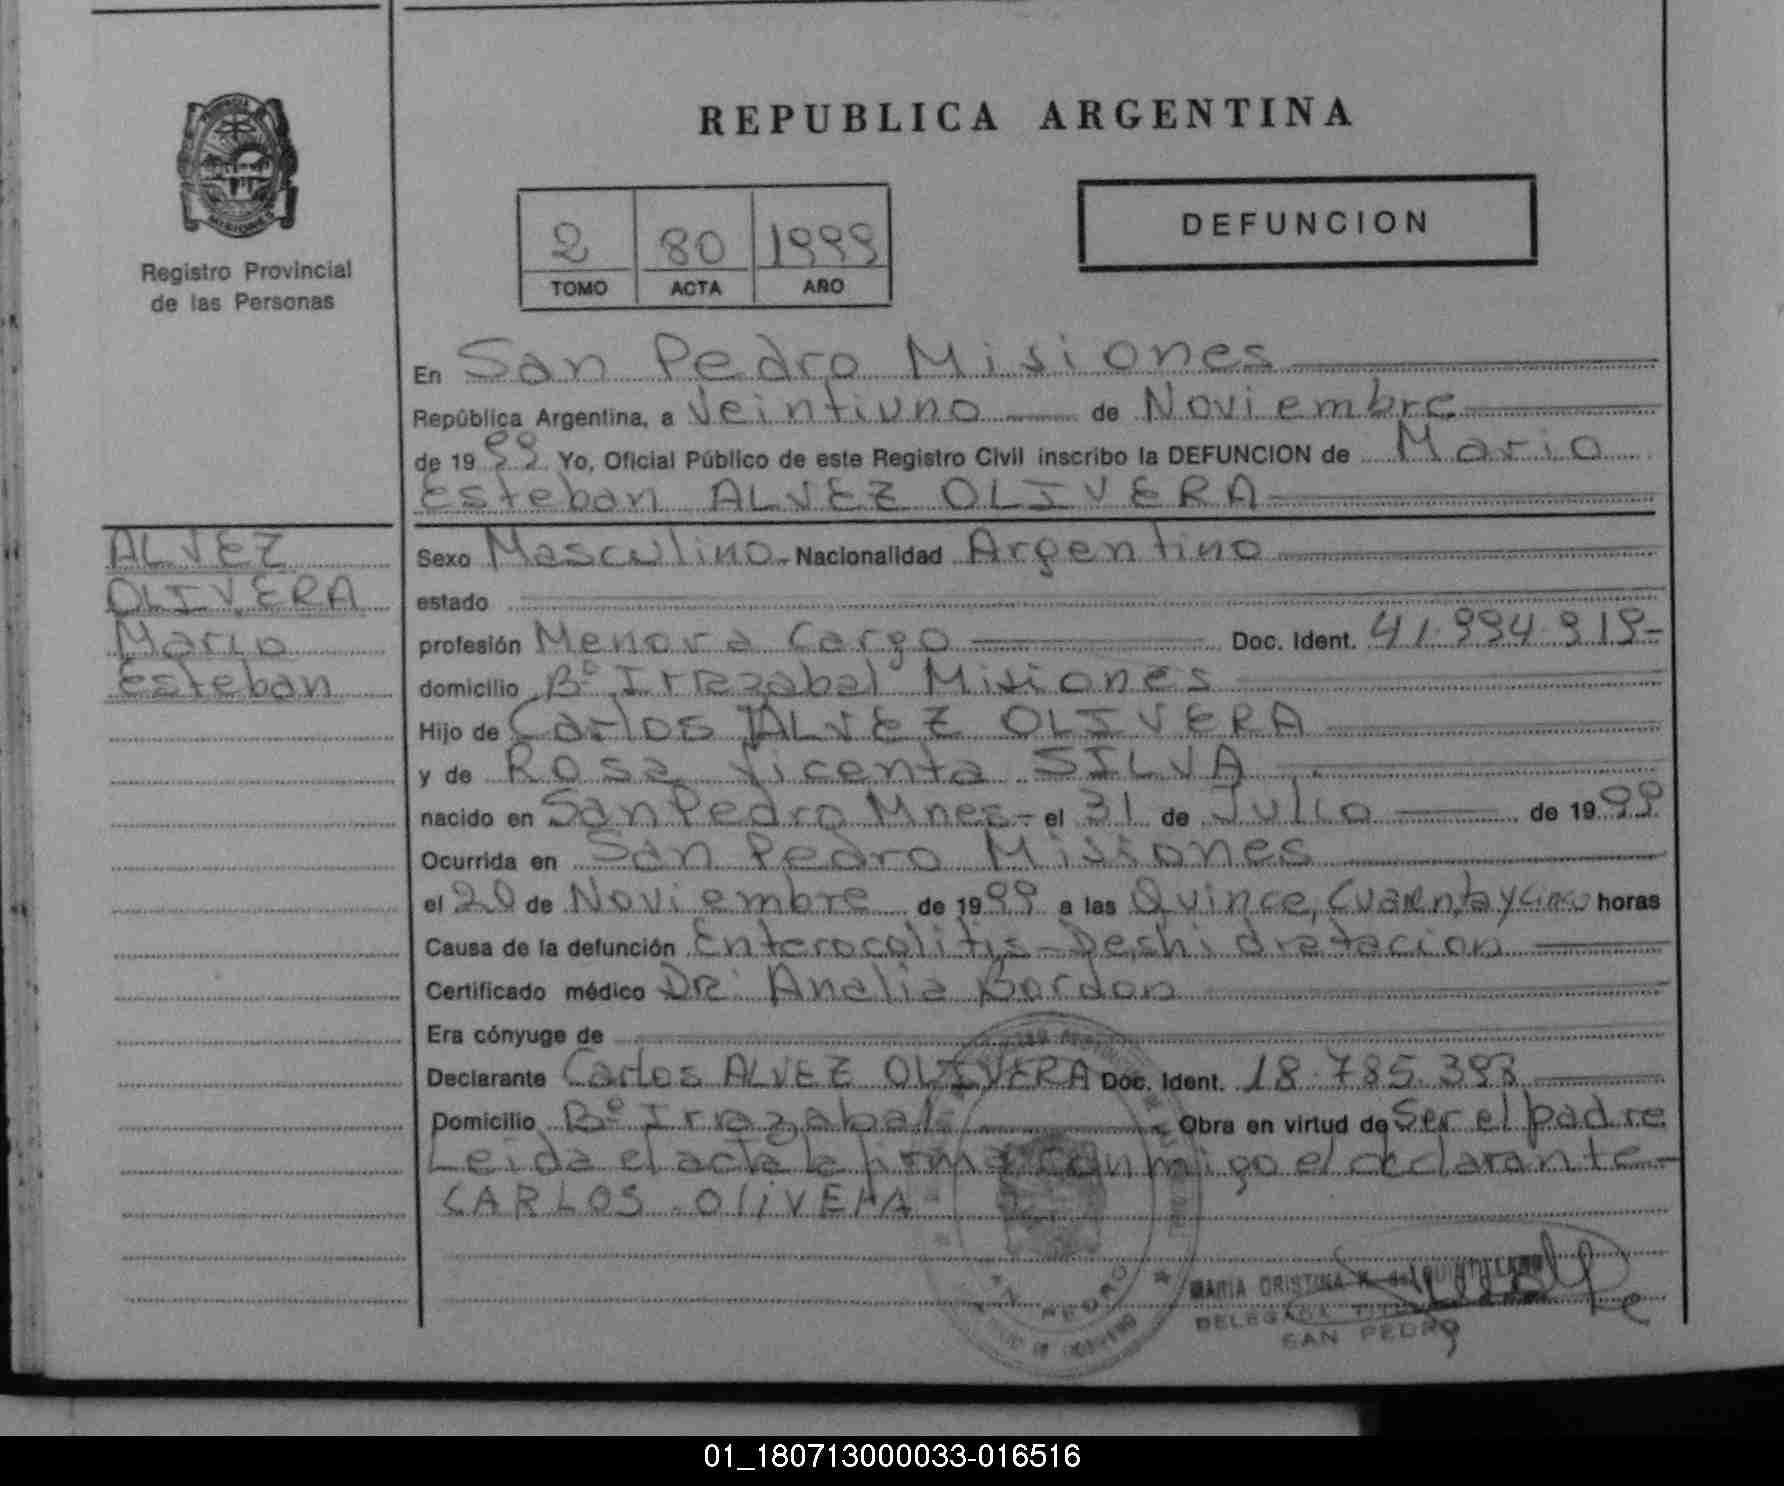 REPUBLICA ARGENTINA
PROVINCIA
MISIONES
Registro Provincial
de las Personas
2 80 1999
TOMO ACTA AÑO
DEFUNCION
En San Pedro Misiones
República Argentina, a Veintiuno de Noviembre
de 19 99 Yo, Oficial Público de este Registro Civil inscribo la DEFUNCION de Mario
Esteban ALVEZ OLIVERA
ALVEZ
OLIVERA
Mario
Esteban
Sexo Masculino - Nacionalidad Argentino
estado
profesión Menor a Cargo Doc. Ident. 41.994.919-
domicilio Bº Irrazabal Misiones
Hijo de Carlos ALVEZ OLIVERA
y de Rosa Vicenta SILVA
nacido en San Pedro Mnes - el 31 de Julio de 19 99
Ocurrida en San Pedro Misiones
el 20 de Noviembre de 19 99 a las Quince, Cuarenta y Cinco horas
Causa de la defunción Enterocolitis - Deshidratacion
Certificado médico Dr: Analia Bordon
Era cónyuge de
Declarante Carlos ALVEZ OLIVERA Doc. Ident. 18.785.393
Domicilio Bº Irrazabal Obra en virtud de Ser el padre
Leida el acta la firma conmigo el declarante -
CARLOS OliVERA
MARIA CRISTINA
SAN PEDRO
SAN PEDRO
01_180713000033-016516